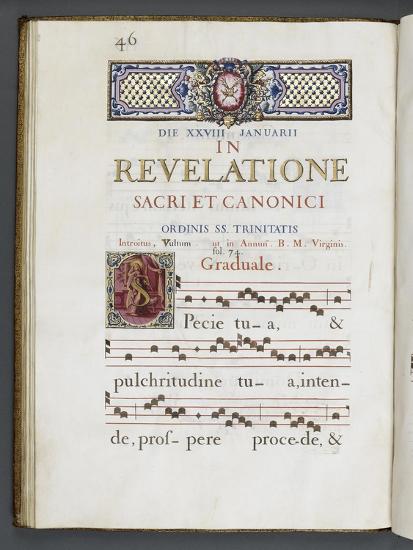 46
DIE XXVIII JANUARII
IN
REVELATIONE
SACRI ET CANONICI
ORDINIS SS. TRINITATIS
Introitus, Vultum ut in Annuñ. B. M. Virginis.
fol. 74.
Graduale.
SPecie tu- a, &
pulchritudine tu- a, inten-
de, prof- pere proce-de, &